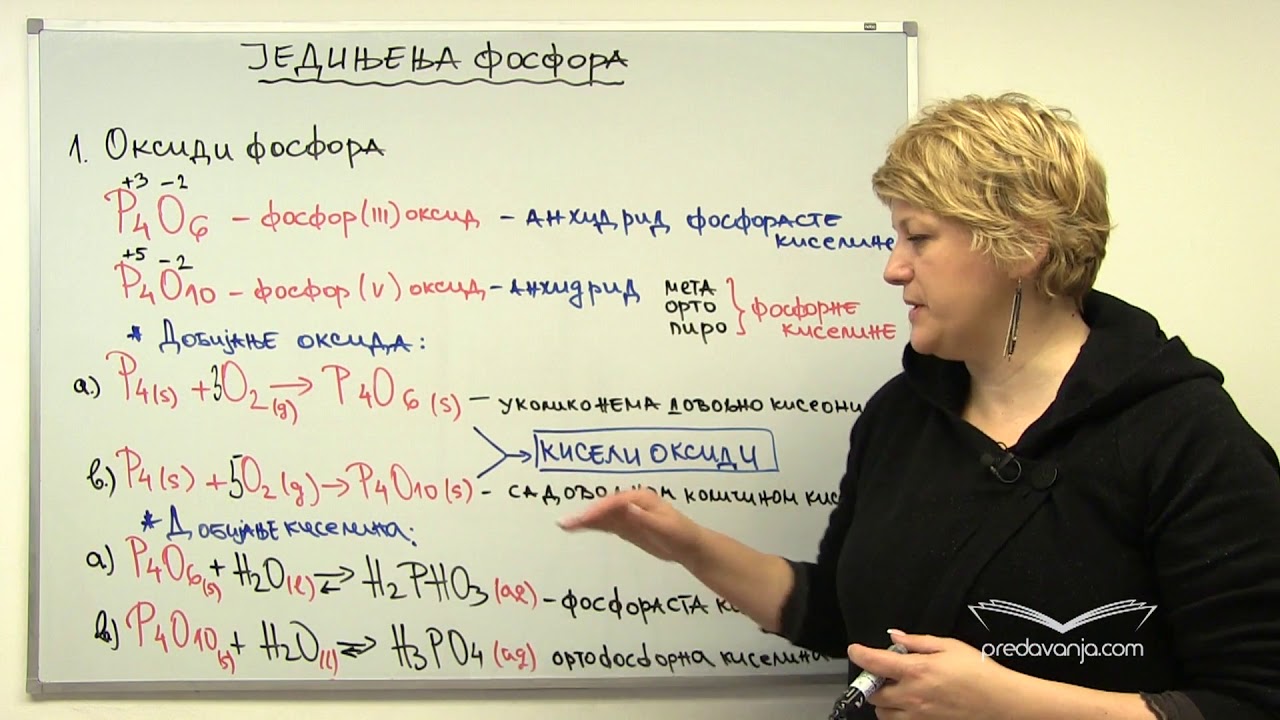 ЈЕДИЊЕЊА ФОСФОРА
1. Оксиди фосфора
+3 -2
P4O6 - фосфор(III) оксид - анхидрид фосфорасте
киселине
+5 -2
P4O10 - фосфор(V) оксид - анхидрид мета
орто
пиро
фосфорне
киселине
* Добијање оксида:
а.) P4(s) + 3O2(g) → P4O6(s) - уколико нема довољно
КИСЕЛИ ОКСИДИ
в.) P4(s) + 5O2(g) → P4O10(s) - са довољном количином
* Добијање киселина:
а) P4O6(s) + H2O(l) ⇌ H2PHO3(aq) - фосфораста
в.) P4O10(s) + H2O(l) ⇌ H3PO4(aq) ортофосфорна киселина
predavanja.com